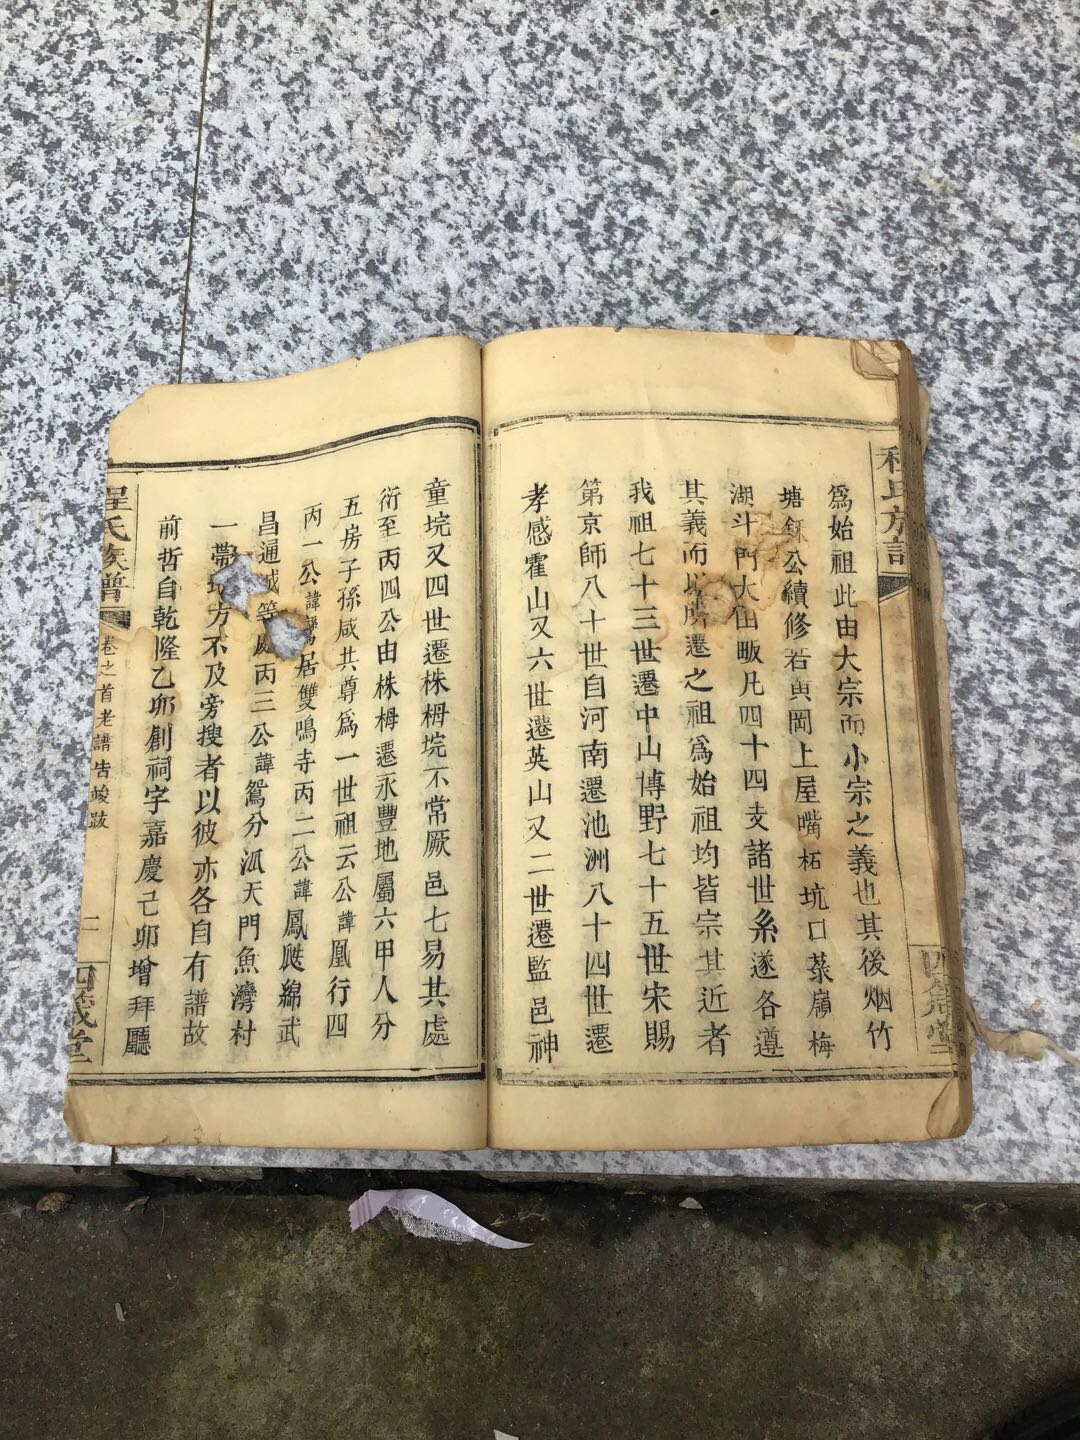 爲始祖此由大宗而小宗之義也其後烟竹
塘錸公續修若黄岡上屋嘴柘坑口菜嶺梅
湖斗門大山畈凡四十四支諸世系遂各遵
其義而以所遷之祖爲始祖均皆宗其近者
我祖七十三世遷中山博野七十五世宋賜
第京師八十世自河南遷池洲八十四世遷
孝感霍山又六世遷英山又二世遷監邑神
童垸又四世遷株栂垸不常厥邑七易其處
衍至丙四公由株栂遷永豐地屬六甲人分
五房子孫咸共尊爲一世祖云公諱凰行四
丙一公諱鸞居雙鳴寺丙二公諱鳳颷綿武
昌通城等處丙三公諱鴛分泒天門魚灣村
一帶地方不及旁搜者以彼亦各自有譜故
前哲自乾隆乙卯創祠字嘉慶己卯增拜廳
程氏族譜
卷之首老譜告竣跋
二
四箴堂